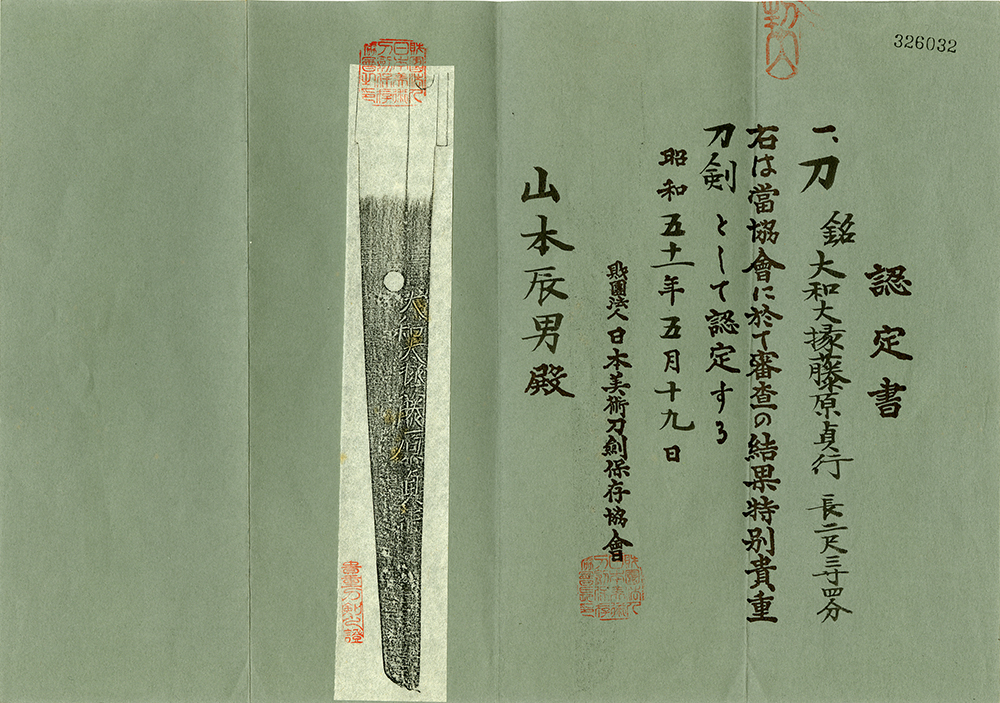 326032
認定書
一、刀 銘 大和大掾藤原貞行 長二尺三寸四分
右は當協會に於て審査の結果特別貴重
刀劍として認定する
昭和五十一年五月十九日
財團法人 日本美術刀劍保存協會
山本辰男殿
大和大掾藤原貞行